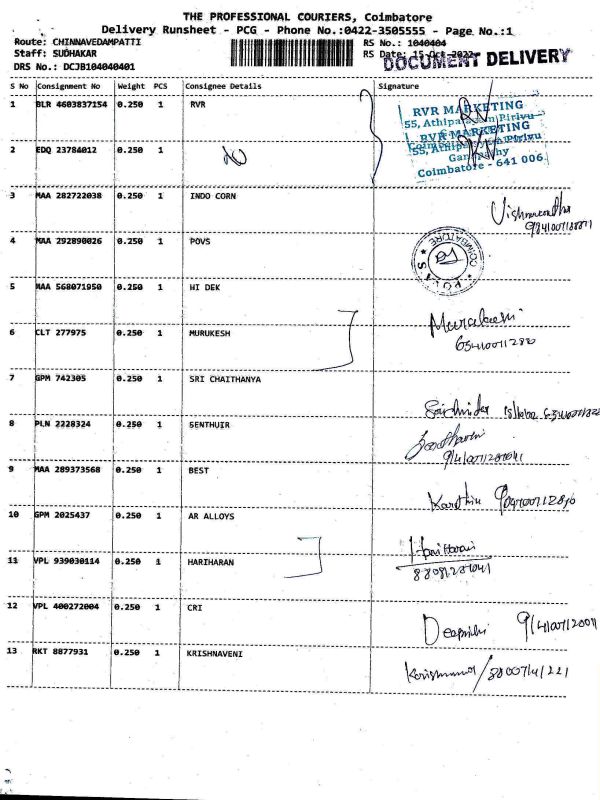 THE PROFESSIONAL COURIERS, Coimbatore
Delivery Runsheet - PCG - Phone No.:0422-3505555 - Page No.:1
Route: CHINNAVEDAMPATTI
RS No.: 1040404
Staff: SUDHAKAR
RS Date: 15-Oct-2022
DOCUMENT DELIVERY
DRS No.: DCJB104040401
S No Consignment No Weight PCS Consignee Details Signature
1 BLR 4603837154 0.250 1 RVR
RVR MARKETING
55, Athipalayam Pirivu
RVR MARKETING
55, Athipalayam Pirivu
Ganapathy
Coimbatore - 641 006.
2 EDQ 23784012 0.250 1
3 MAA 282722038 0.250 1 INDO CORN
4 MAA 292890026 0.250 1 POVS
COIMBATORE
5 MAA 568071950 0.250 1 HI DEK
6 CLT 277975 0.250 1 MURUKESH
7 GPM 742305 0.250 1 SRI CHAITHANYA
8 PLN 2228324 0.250 1 SENTHUIR
9 MAA 289373568 0.250 1 BEST
10 GPM 2025437 0.250 1 AR ALLOYS
11 VPL 939030114 0.250 1 HARIHARAN
12 VPL 400272004 0.250 1 CRI
13 RKT 8877931 0.250 1 KRISHNAVENI